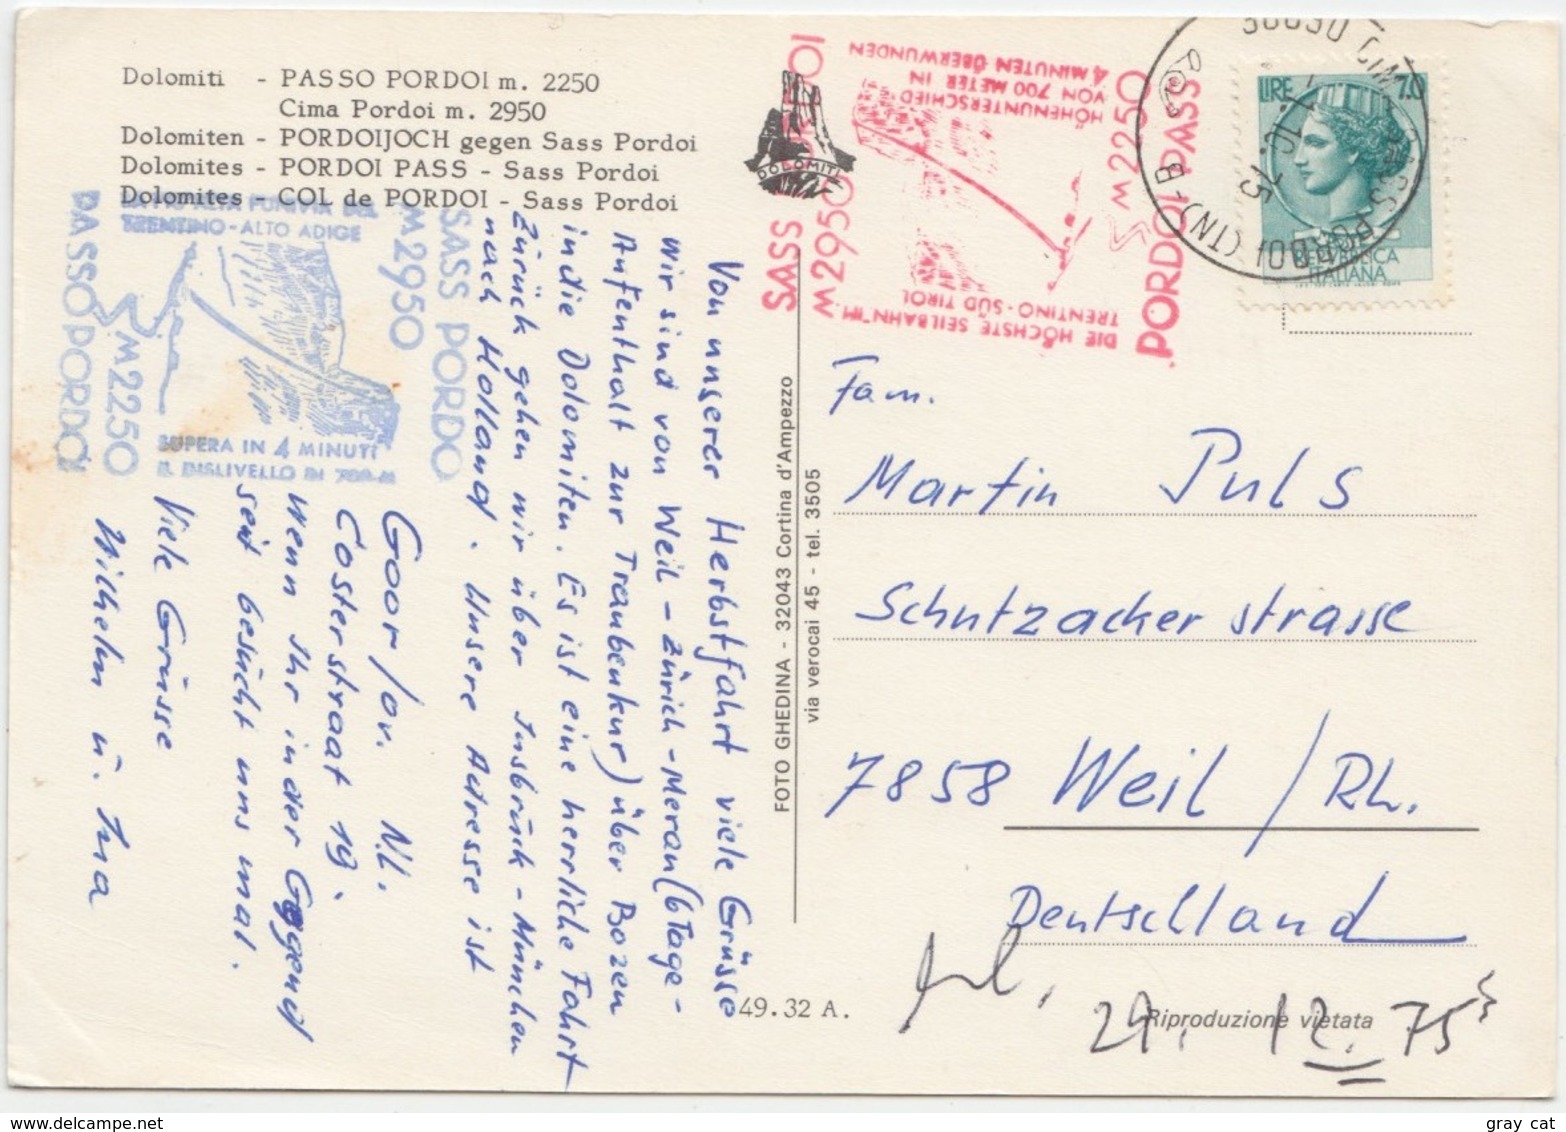 Dolomiti - PASSO PORDOI m. 2250
Cima Pordoi m. 2950
Dolomiten - PORDOIJOCH gegen Sass Pordoi
Dolomites - PORDOI PASS - Sass Pordoi
Dolomites - COL de PORDOI - Sass Pordoi
ALTA FUNIVIA DEL
TRENTINO-ALTO ADIGE
SASS PORDO
M2950
M2250
PASSO PORDOI
SUPERA IN 4 MINUTI
IL DISLIVELLO DI 700 M
Von unserer Herbstfahrt viele Grüsse
Wir sind von Weil - Zürich - Meran (6 Tage -
Aufenthalt zur Traubenkur) über Bozen
in die Dolomiten. Es ist eine herrliche Fahrt
Zurück gehen wir über Insbruck - München
nach Holland. Unsere Adresse ist
Goor/ov. N.L.
Costerstraat 19.
Wenn Ihr in der Gegend
seit besucht uns mal.
Viele Grüsse
Wilhelm u. Ina
FOTO GHEDINA - 32043 Cortina d'Ampezzo
via verocai 45 - tel. 3505
DOLOMITI
SASS PORDOI
M2950
DIE HÖCHSTE SEILBAHN IM
TRENTINO-SÜD TIROL
HÖHENUNTERSCHIED
VON 700 METER IN
4 MINUTEN ÜBERWUNDEN
M2250
PORDOI PASS
PORDOI (TN) - B -
75
LIRE 70
REPVBBLICA
ITALIANA
Fam.
Martin Puls
Schutzacker strasse
7858 Weil /Rh.
Deutschland
29. 12. 75
49.32 A.
Riproduzione vietata
gray cat